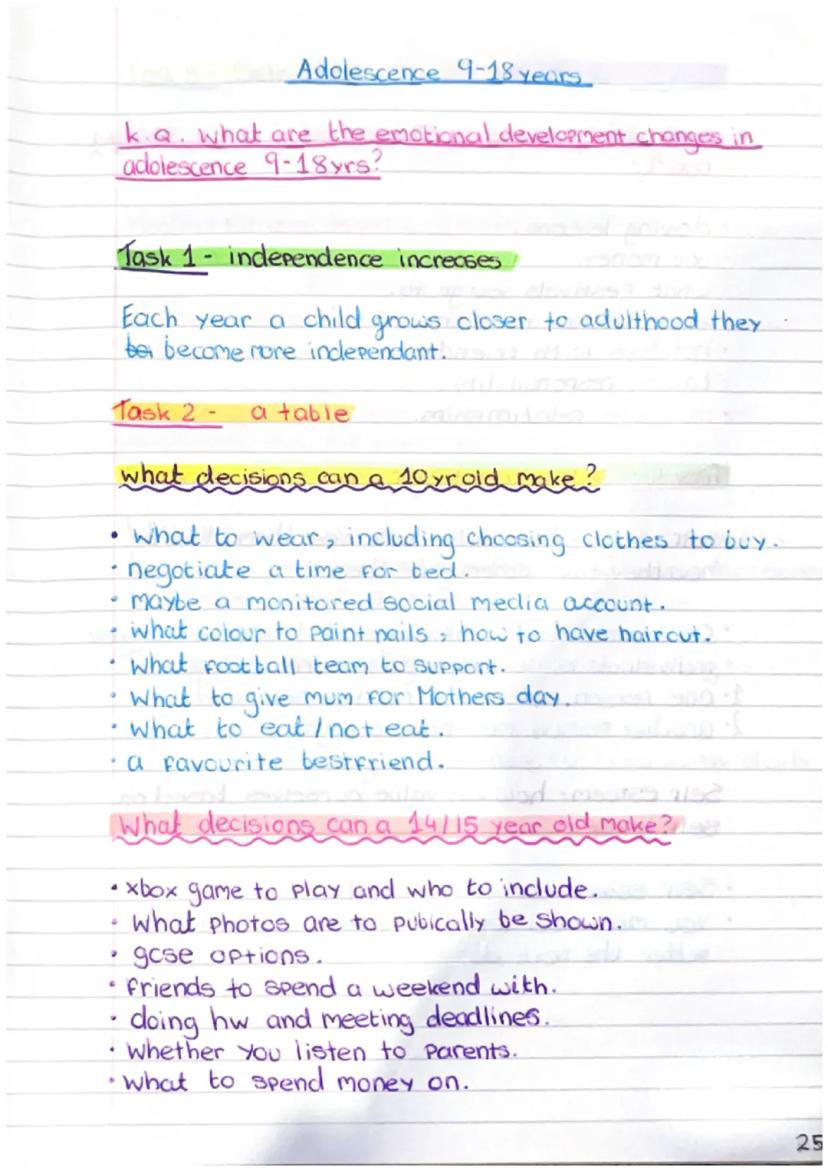 Adolescence 9-18 years
k.q. what are the emotional development changes in
adolescence 9-18yrs?
Task 1 - independence increases
Each year a child grows closer to adulthood they
be become more independant.
Task 2 - a table
what decisions can a 10 yr old make?
• what to wear, including choosing clothes to buy.
• negotiate a time for bed.
• maybe a monitored social media account.
• what colour to paint nails, how to have haircut.
• what football team to support.
• what to give mum for Mothers day.
• what to eat / not eat.
• a favourite bestfriend.
What decisions can a 14/15 year old make?
• xbox game to play and who to include.
• what photos are to pubically be shown.
• gcse options.
• friends to spend a weekend with.
• doing hw and meeting deadlines.
• whether you listen to parents.
• what to spend money on.
25